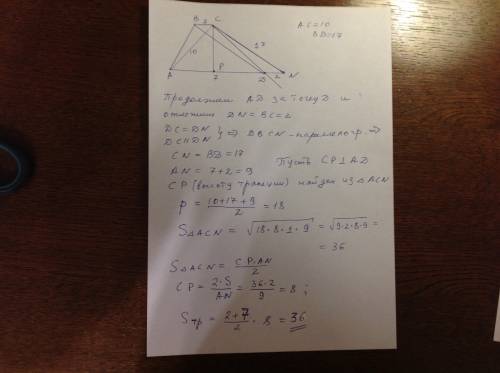 B 2 C
AC=10
BD=17
10
17
A P D 2 N
7
Продолжим AD за точку D и
отложим DN = BC = 2
DC = DN
DC || DN } => DBCN - параллелогр. =>
CN = BD = 17
Пусть CP ⊥ AD
AN = 7+2 = 9
CP (высоту трапеции) найдем из △ACN
p = (10+17+9)/2 = 18
S△ACN = √(18·8·1·9) = √(9·2·8·9) =
= 36
S△ACN = CP·AN/2
CP = 2·S/AN = 36·2/9 = 8 ;
Sтр = (2+7)/2 · 8 = 36